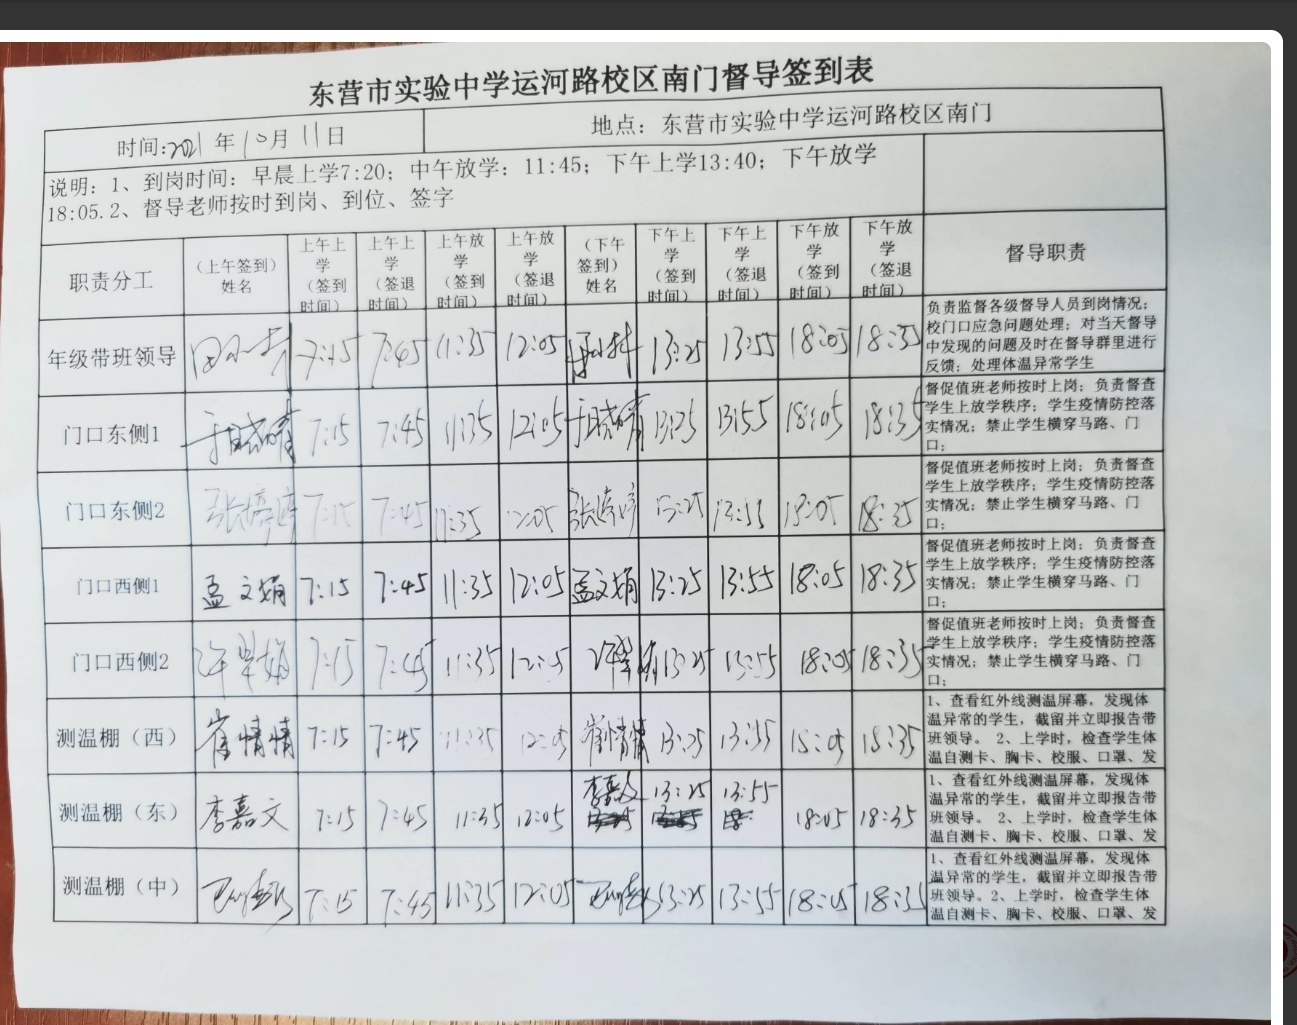 东营市实验中学运河路校区南门督导签到表
时间:2021年10月11日
地点：东营市实验中学运河路校区南门
说明：1、到岗时间：早晨上学7:20；中午放学：11:45；下午上学13:40；下午放学
18:05.2、督导老师按时到岗、到位、签字
职责分工
（上午签到）
姓名
上午上
学
（签到
时间）
上午上
学
（签退
时间）
上午放
学
（签到
时间）
上午放
学
（签退
时间）
（下午
签到）
姓名
下午上
学
（签到
时间）
下午上
学
（签退
时间）
下午放
学
（签到
时间）
下午放
学
（签退
时间）
督导职责
年级带班领导
7:15 7:45 11:35 12:05
13:25 13:55 18:05 18:35
负责监督各级督导人员到岗情况；
校门口应急问题处理；对当天督导
中发现的问题及时在督导群里进行
反馈；处理体温异常学生
门口东侧1
于晓晴 7:15 7:45 11:35 12:05 于晓晴 13:25 13:55 18:05 18:35
督促值班老师按时上岗；负责督查
学生上放学秩序；学生疫情防控落
实情况；禁止学生横穿马路、门
口；
门口东侧2
张婷婷 7:15 7:45 11:35 12:05 张婷婷 13:25 13:55 18:05 18:35
督促值班老师按时上岗；负责督查
学生上放学秩序；学生疫情防控落
实情况；禁止学生横穿马路、门
口；
门口西侧1
孟文娟 7:15 7:45 11:35 12:05 孟文娟 13:25 13:55 18:05 18:35
督促值班老师按时上岗；负责督查
学生上放学秩序；学生疫情防控落
实情况；禁止学生横穿马路、门
口；
门口西侧2
7:15 7:45 11:35 12:05
13:25 13:55 18:05 18:35
督促值班老师按时上岗；负责督查
学生上放学秩序；学生疫情防控落
实情况；禁止学生横穿马路、门
口；
测温棚（西）
崔情情 7:15 7:45 11:35 12:05 崔情情 13:25 13:55 18:05 18:35
1、查看红外线测温屏幕，发现体
温异常的学生，截留并立即报告带
班领导。 2、上学时，检查学生体
温自测卡、胸卡、校服、口罩、发
测温棚（东）
李嘉文 7:15 7:45 11:35 12:05 李嘉文 13:25 13:55 18:05 18:35
1、查看红外线测温屏幕，发现体
温异常的学生，截留并立即报告带
班领导。 2、上学时，检查学生体
温自测卡、胸卡、校服、口罩、发
测温棚（中）
7:15 7:45 11:35 12:05
13:25 13:55 18:05 18:35
1、查看红外线测温屏幕，发现体
温异常的学生，截留并立即报告带
班领导。2、上学时，检查学生体
温自测卡、胸卡、校服、口罩、发